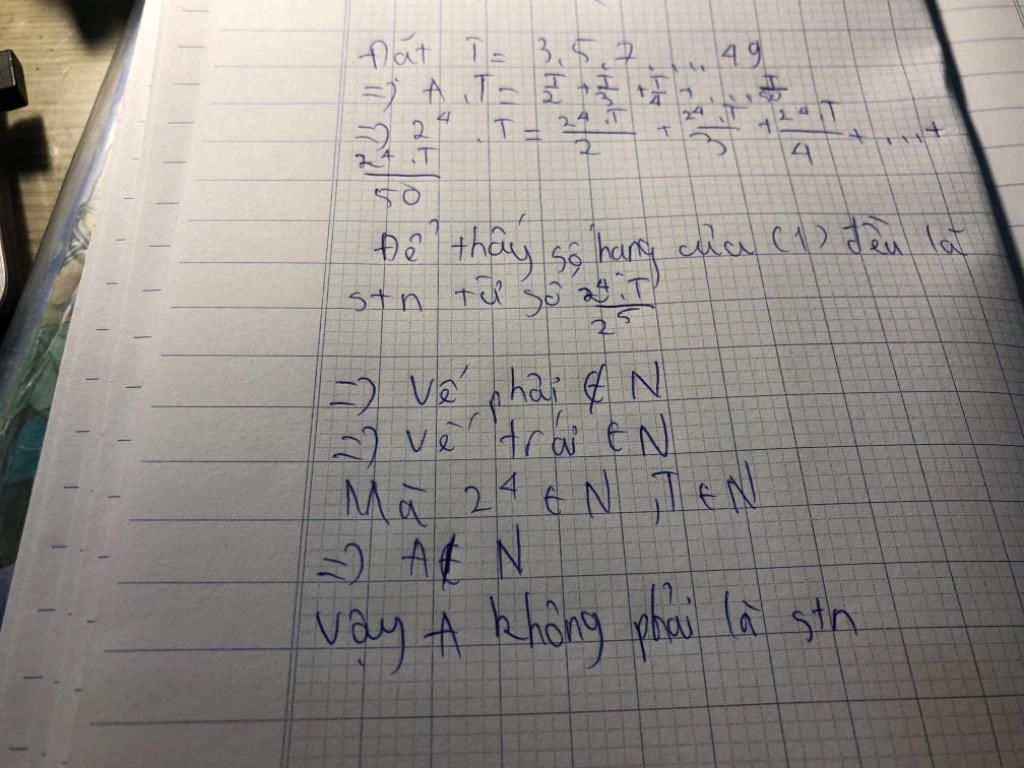 Đặt T = 3.5.7. ... 49
=> A.T = T/2 + T/3 + T/4 + ... T/50
=> 2^4 .T = 2^4.T/2 + 2^4.T/3 + 2^4.T/4 + ... +
2^4.T/50
Dể thấy số hạng của (1) đều là
stn từ số 2^4.T/2^5
=> Vế phải ∉ N
=> Vế trái ∈ N
Mà 2^4 ∈ N, T ∈ N
=> A ∉ N
Vậy A không phải là stn